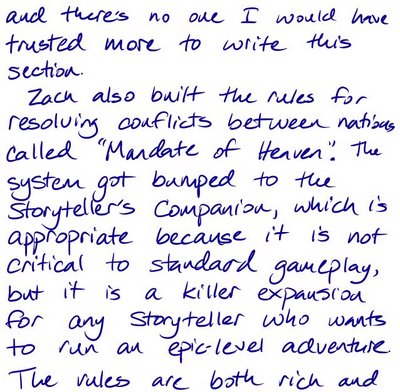 and there's no one I would have
trusted more to write this
section.
Zach also built the rules for
resolving conflicts between nations
called "Mandate of Heaven". The
system got bumped to the
Storyteller's Companion, which is
appropriate because it is not
critical to standard gameplay,
but it is a killer expansion
for any Storyteller who wants
to run an epic-level adventure.
The rules are both rich and